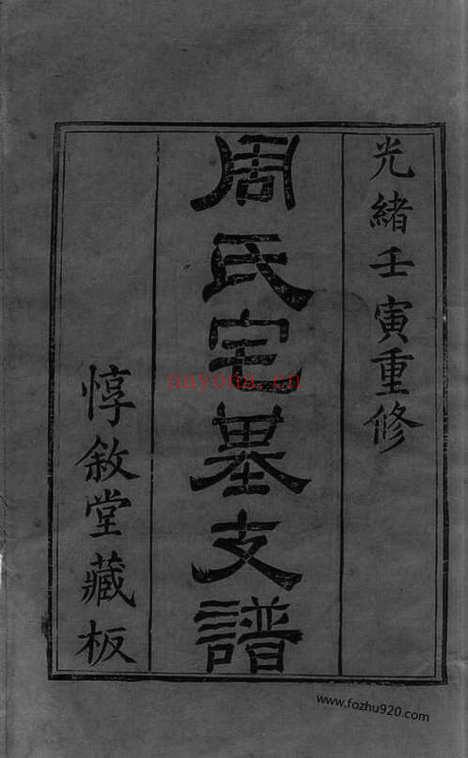 光緒壬寅重修
周氏宅墓支譜
惇敘堂藏板
nayona.cn
www.fozhu920.com